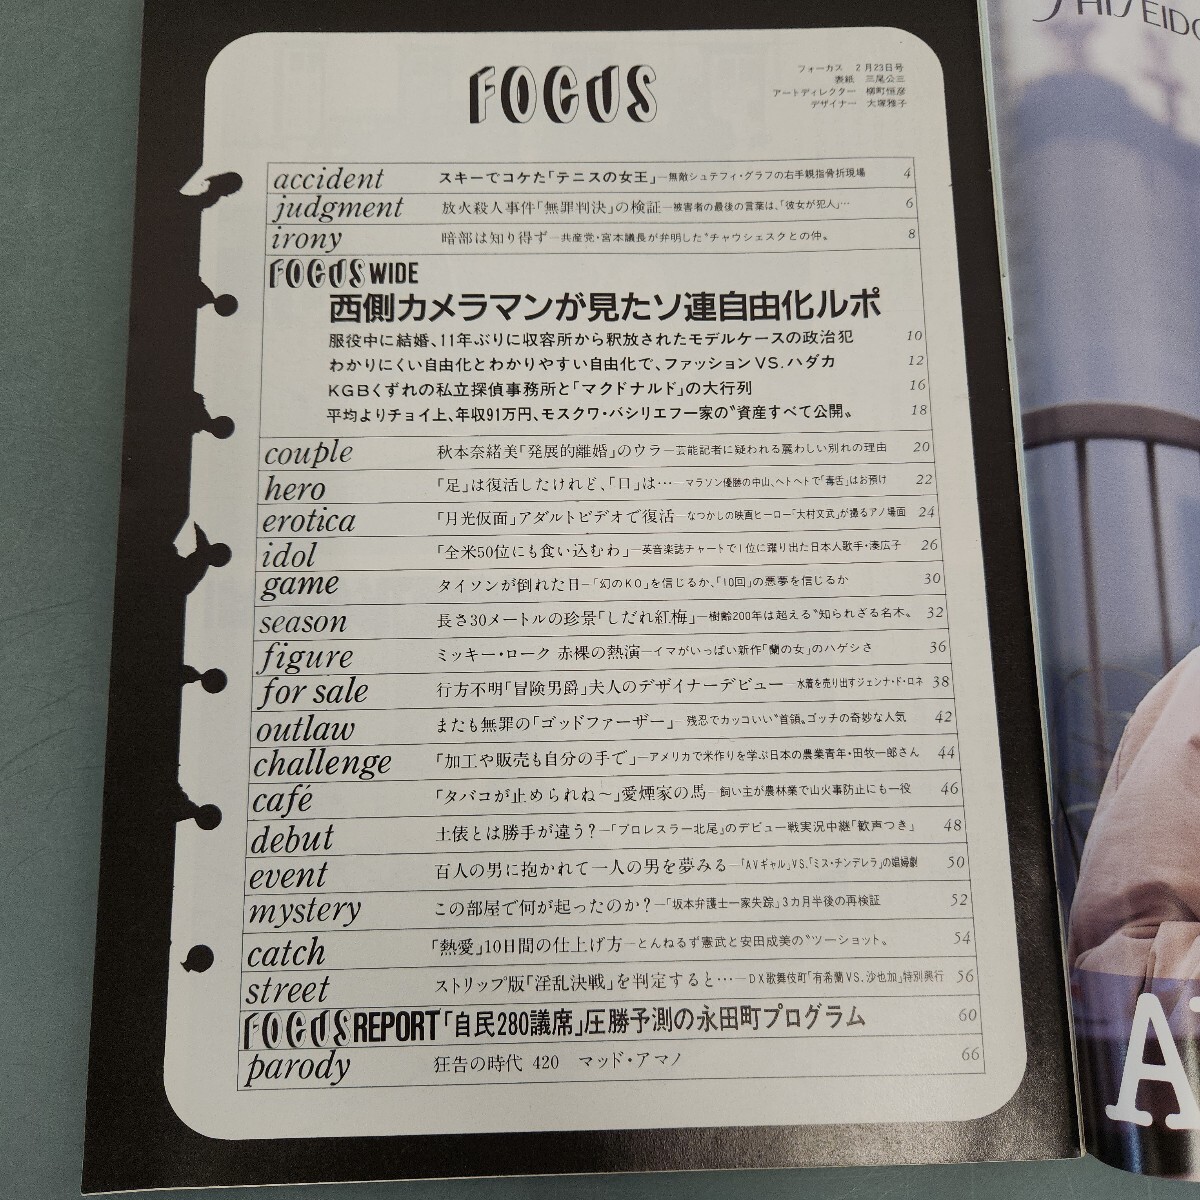 FOCUS
フォーカス 2月23日号
表紙 三尾公三
アートディレクター 柳町恒彦
デザイナー 大塚雅子
SHISEIDO
accident スキーでコケた「テニスの女王」―無敵シュテフィ・グラフの右手親指骨折現場 4
judgment 放火殺人事件「無罪判決」の検証―被害者の最後の言葉は、「彼女が犯人」… 6
irony 暗部は知り得ず―共産党・宮本議長が弁明した〝チャウシェスクとの仲〟 8
FOCUS WIDE
西側カメラマンが見たソ連自由化ルポ
服役中に結婚、11年ぶりに収容所から釈放されたモデルケースの政治犯 10
わかりにくい自由化とわかりやすい自由化で、ファッションVS.ハダカ 12
KGBくずれの私立探偵事務所と「マクドナルド」の大行列 16
平均よりチョイ上、年収91万円、モスクワ・バシリエフ一家の〝資産すべて公開〟 18
couple 秋本奈緒美「発展的離婚」のウラ―芸能記者に疑われる麗わしい別れの理由 20
hero 「足」は復活したけれど、「口」は…―マラソン優勝の中山、ヘトヘトで「毒舌」はお預け 22
erotica 「月光仮面」アダルトビデオで復活―なつかしの映画ヒーロー「大村文武」が撮るアノ場面 24
idol 「全米50位にも食い込むわ」―英音楽誌チャートで1位に躍り出た日本人歌手・湊広子 26
game タイソンが倒れた日―「幻のKO」を信じるか、「10回」の悪夢を信じるか 30
season 長さ30メートルの珍景「しだれ紅梅」―樹齢200年は超える〝知られざる名木〟 32
figure ミッキー・ローク 赤裸の熱演―イマがいっぱい新作「蘭の女」のハゲシさ 36
for sale 行方不明「冒険男爵」夫人のデザイナーデビュー―水着を売り出すジェンナ・ド・ロネ 38
outlaw またも無罪の「ゴッドファーザー」―残忍でカッコいい〝首領〟ゴッチの奇妙な人気 42
challenge 「加工や販売も自分の手で」―アメリカで米作りを学ぶ日本の農業青年・田牧一郎さん 44
café 「タバコが止められね〜」愛煙家の馬―飼い主が農林業で山火事防止にも一役 46
debut 土俵とは勝手が違う?―「プロレスラー北尾」のデビュー戦実況中継「歓声つき」 48
event 百人の男に抱かれて一人の男を夢みる―「AVギャル」VS.「ミス・チンデレラ」の娼婦劇 50
mystery この部屋で何が起ったのか?―「坂本弁護士一家失踪」3カ月半後の再検証 52
catch 「熱愛」10日間の仕上げ方―とんねるず憲武と安田成美の〝ツーショット〟 54
street ストリップ版「淫乱決戦」を判定すると…―DX歌舞伎町「有希蘭VS.沙也加」特別興行 56
FOCUS REPORT「自民280議席」圧勝予測の永田町プログラム 60
parody 狂告の時代 420 マッド・アマノ 66